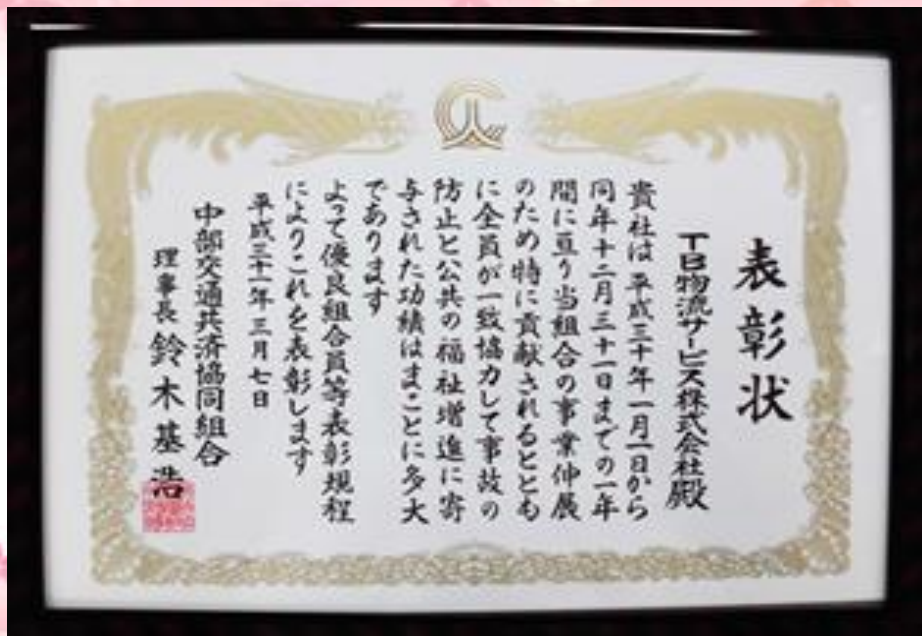 表彰状
TB物流サービス株式会社殿
貴社は平成三十年一月一日から
同年十二月三十一日までの一年
間に亘り当組合の事業伸展
のため特に貢献されるととも
に全員が一致協力して事故の
防止と公共の福祉増進に寄
与された功績はまことに多大
であります
よって優良組合員等表彰規程
によりこれを表彰します
平成三十一年三月七日
中部交通共済協同組合
理事長 鈴木基浩